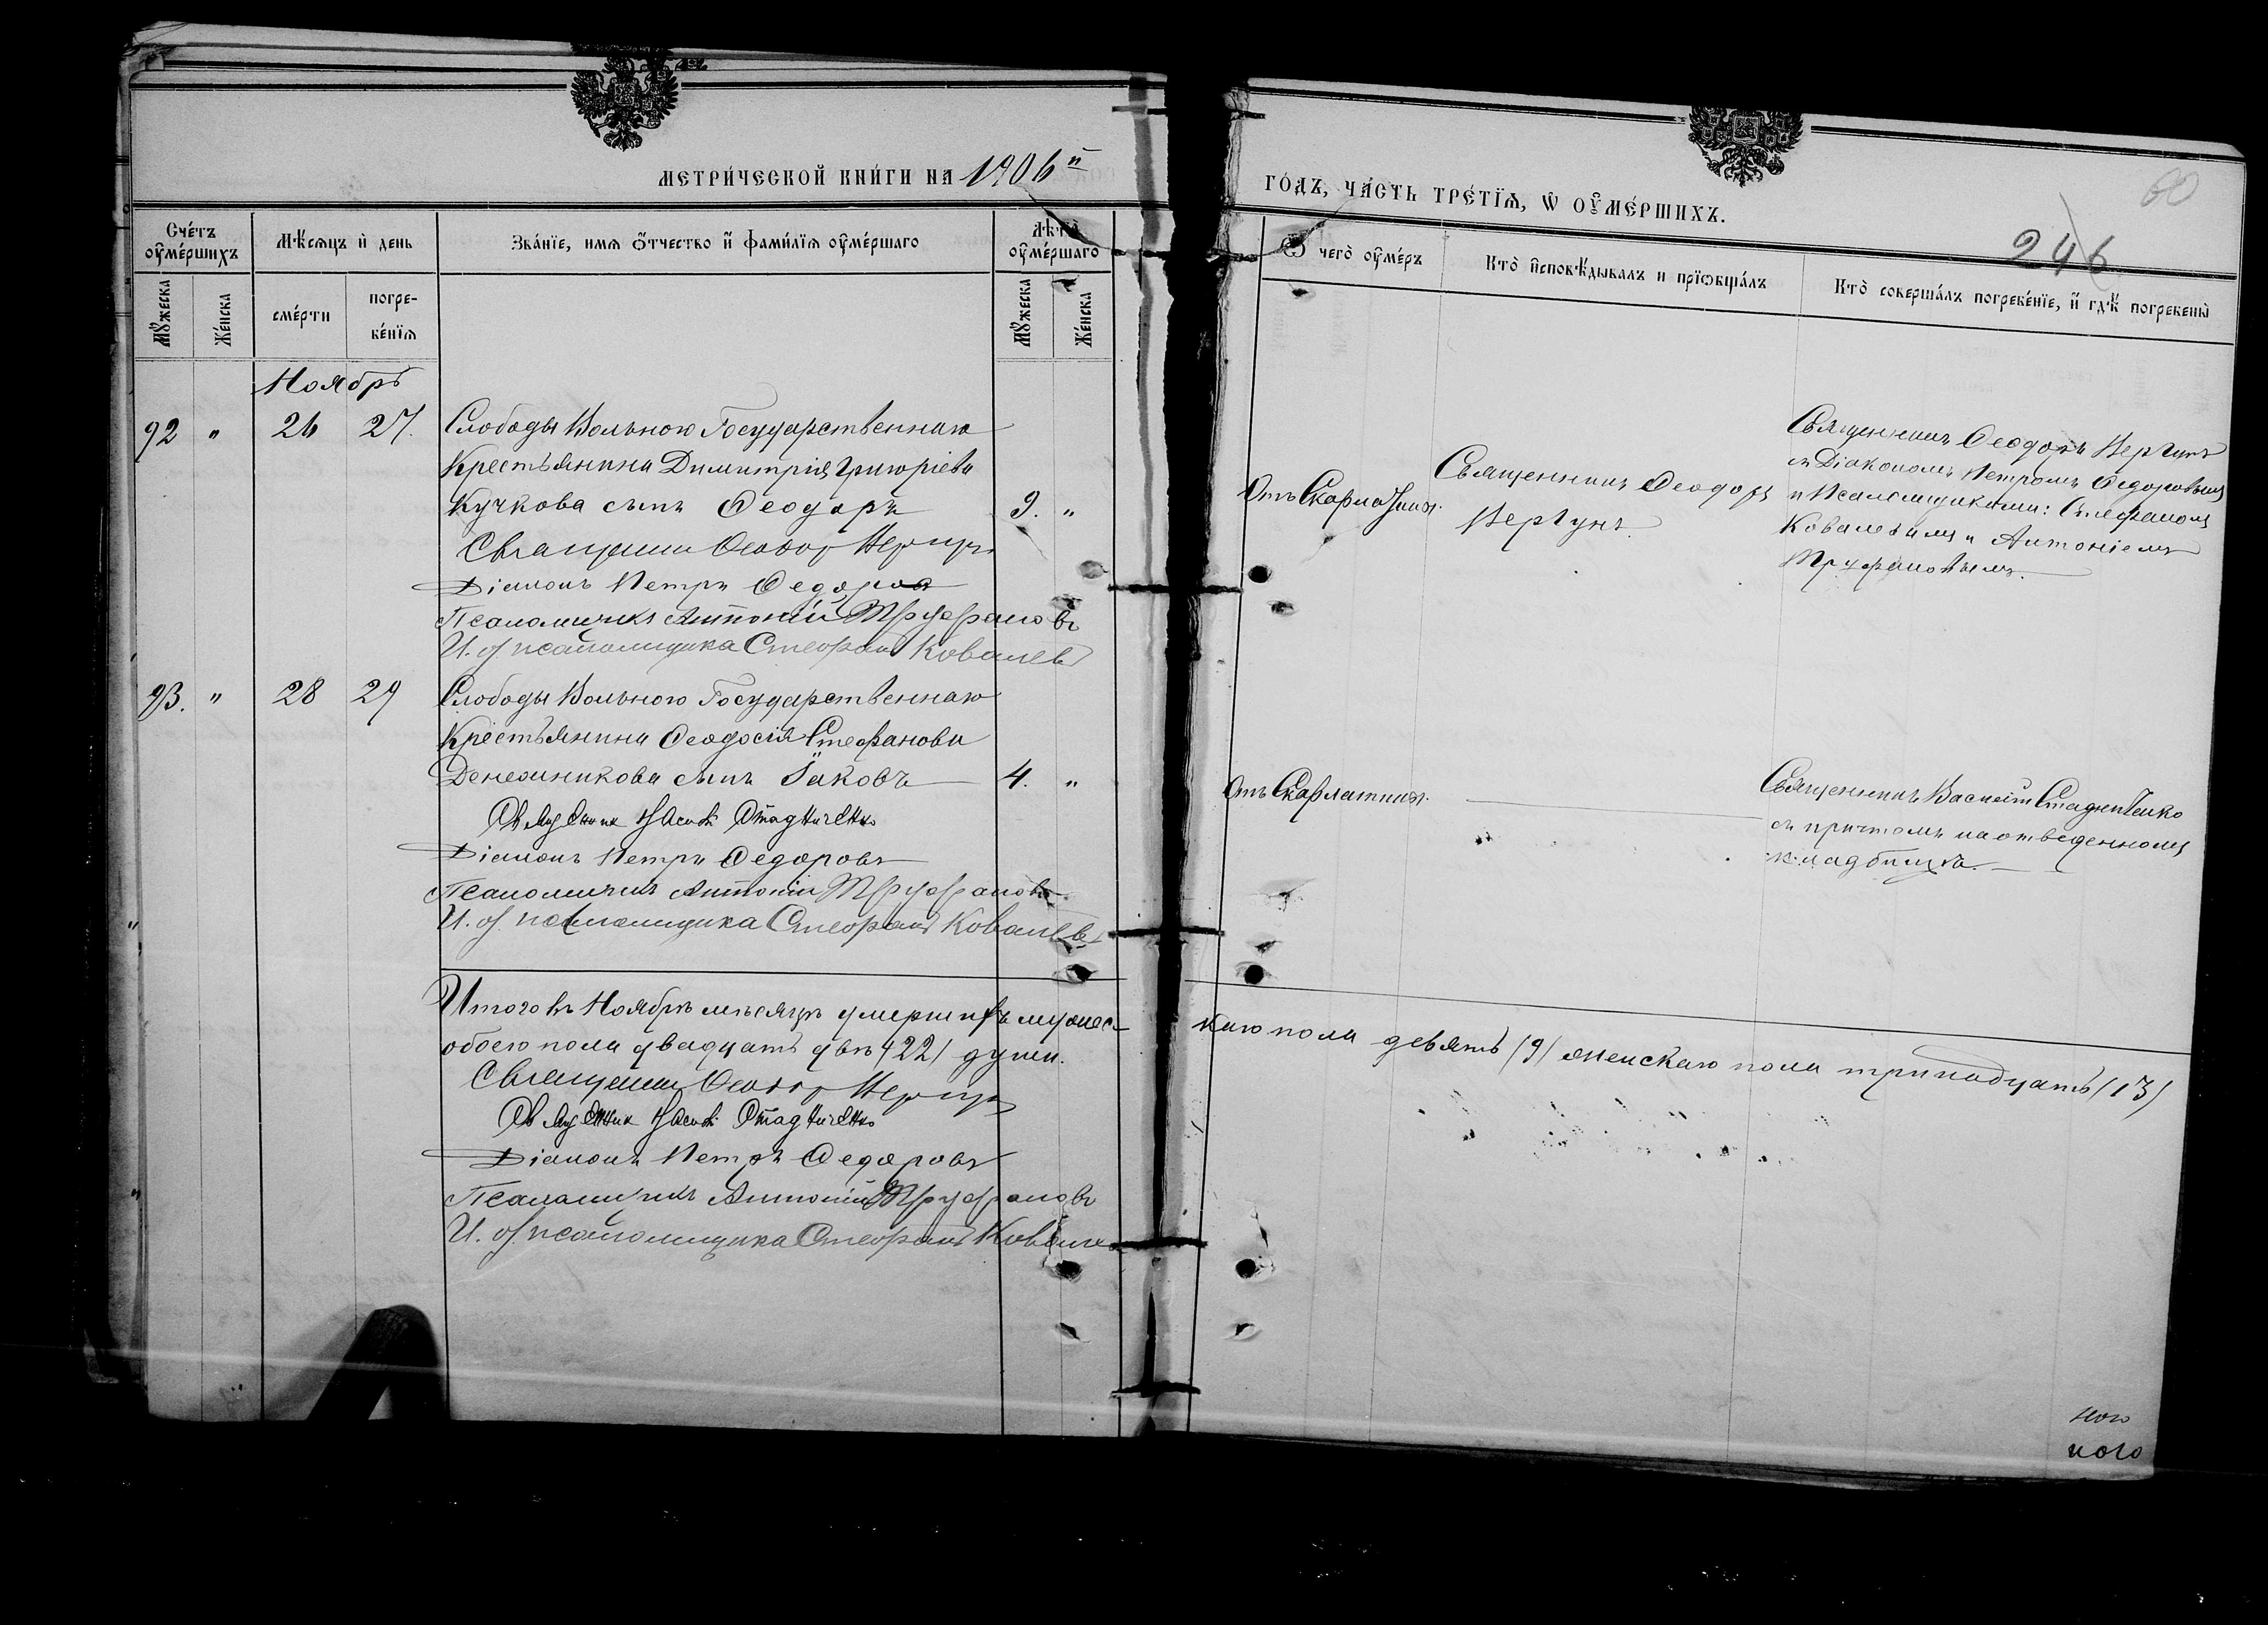 МЕТРИ́ЧЕСКОЙ КНИ́ГИ НА 1906й
ГО́ДЪ, ЧА́СТЬ ТРЕ́ТЇѦ, Ѡ ОУ҆МЕ́РШИХЪ.
60
246
Сче́тъ оу҆ме́ршихъ
Мѣ́сѧцъ и҆ день
Зва́нїе, имѧ ѻ҆́тчество и҆ фами́лїѧ оу҆ме́ршаго
Лѣ́та оу҆ме́ршаго
Ѿ чегѡ̀ оу҆ме́ръ
Кто̀ и҆сповѣ́дывалъ и прїѡбща́лъ
Кто̀ соверша́лъ погребе́нїе, и҆ гдѣ̀ погребены̀
Мꙋ́жеска
Же́нска
сме́рти
погре-
бе́нїѧ
Мꙋ́жеска
Же́нска
Ноябрь
92 " 26 27. Слободы Вольного Государственнаго
Крестьянина Димитрія Григоріева
Кучкова сынъ Ѳеодоръ 9. "
Священник Ѳеодор Вергунъ
Діаконъ Петръ Ѳедоровъ
Псаломщикъ Антоній Труфановъ
И. об. псаломщика Стефанъ Ковалевъ
Отъ Скарлатины.
Священникъ Ѳеодоръ
Вергунъ.
Священникъ Ѳеодоръ Вергунъ
съ Діакономъ Петромъ Ѳедоровымъ
и Псаломщиками: Стефаномъ
Ковалевымъ и Антоніемъ
Труфановымъ.
93. " 28 29 Слободы Вольного Государственнаго
Крестьянина Ѳеодосія Стефанова
Денежникова сынъ Іаковъ 4. "
Священник Василій Стадниченко
Діаконъ Петръ Ѳедоровъ
Псаломщикъ Антоній Труфановъ
И. об. псаломщика Стефанъ Ковалевъ
Отъ Скарлатины.
Священникъ Василій Стадниченко
съ причтомъ на отведенномъ
кладбищѣ.
Итого въ Ноябрѣ мѣсяцѣ умершихъ мужес-
каго пола девять (9) женскаго пола тринадцать (13)
обоего пола двадцать двѣ (22) души.
Священник Ѳеодор Вергунъ
Священник Василій Стадниченко
Діаконъ Петръ Ѳедоровъ
Псаломщикъ Антоній Труфановъ
И. об. псаломщика Стефанъ Ковалев
ного
ного